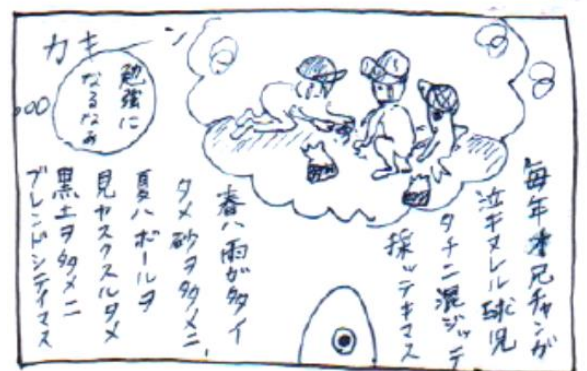 カキーン
毎年オ兄チャンガ
泣キヌレル球児
タチニ混ジッテ
採ッテキマス
春ハ雨ガ多イ
タメ砂ヲ多メニ、
夏ハボールヲ
見ヤスクスルタメ
黒土ヲ多メニ
ブレンドシテイマス
勉強に
なるなぁ